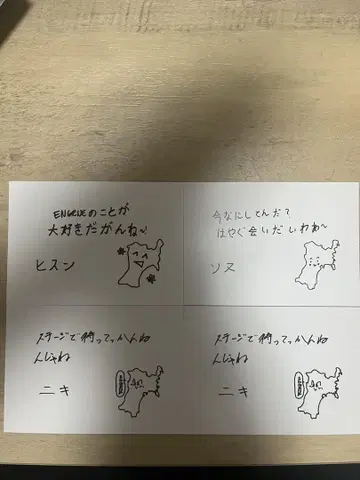 ENGENEのことが
大好きだがんね~!
ヒスン
今なにしてんだ?
はやぐ会いだいわぁ~
ソヌ
ステージで待ってっかんね
んじゃね
ニキ
ステージで待ってっかんね
んじゃね
ニキ